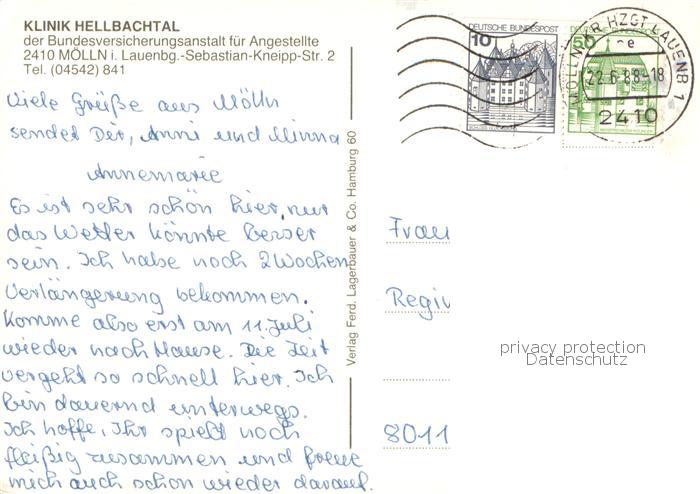 KLINIK HELLBACHTAL
der Bundesversicherungsanstalt für Angestellte
2410 MÖLLN i. Lauenbg.-Sebastian-Kneipp-Str. 2
Tel. (04542) 841
Viele Grüße aus Mölln
sendet Dir, Anni und Minna
Annemarie
Es ist sehr schön hier, nur
das Wetter könnte besser
sein. Ich habe noch 2 Wochen
Verlängerung bekommen.
Komme also erst am 11. Juli
wieder nach Hause. Die Zeit
vergeht so schnell hier. Ich
bin dauernd unterwegs.
Ich hoffe, Ihr spielt noch
fleißig zusammen und freue
mich auch schon wieder darauf.
Verlag Ferd. Lagerbauer & Co. Hamburg 60
10
DEUTSCHE BUNDESPOST
50
MÖLLN, KR HZGT LAUENB 1
e
22.6.88-18
2410
Frau
Regi
8011
privacy protection
Datenschutz